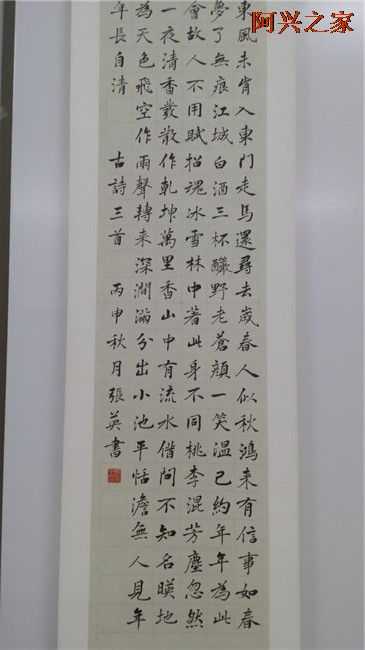 阿兴之家
東風未肯入東門走馬還尋去歲春人似秋鴻来有信事如春
夢了無痕江城白酒三杯釅野老蒼顔一笑温已約年年為此
會故人不用賦招魂冰雪林中著此身不同桃李混芳塵忽然
一夜清香發散作乾坤萬里香山中有流水借問不知名暎地
為天色飛空作雨聲轉来深澗滿分出小池平恬澹無人見年
年長自清 古詩三首 丙申秋月張英書